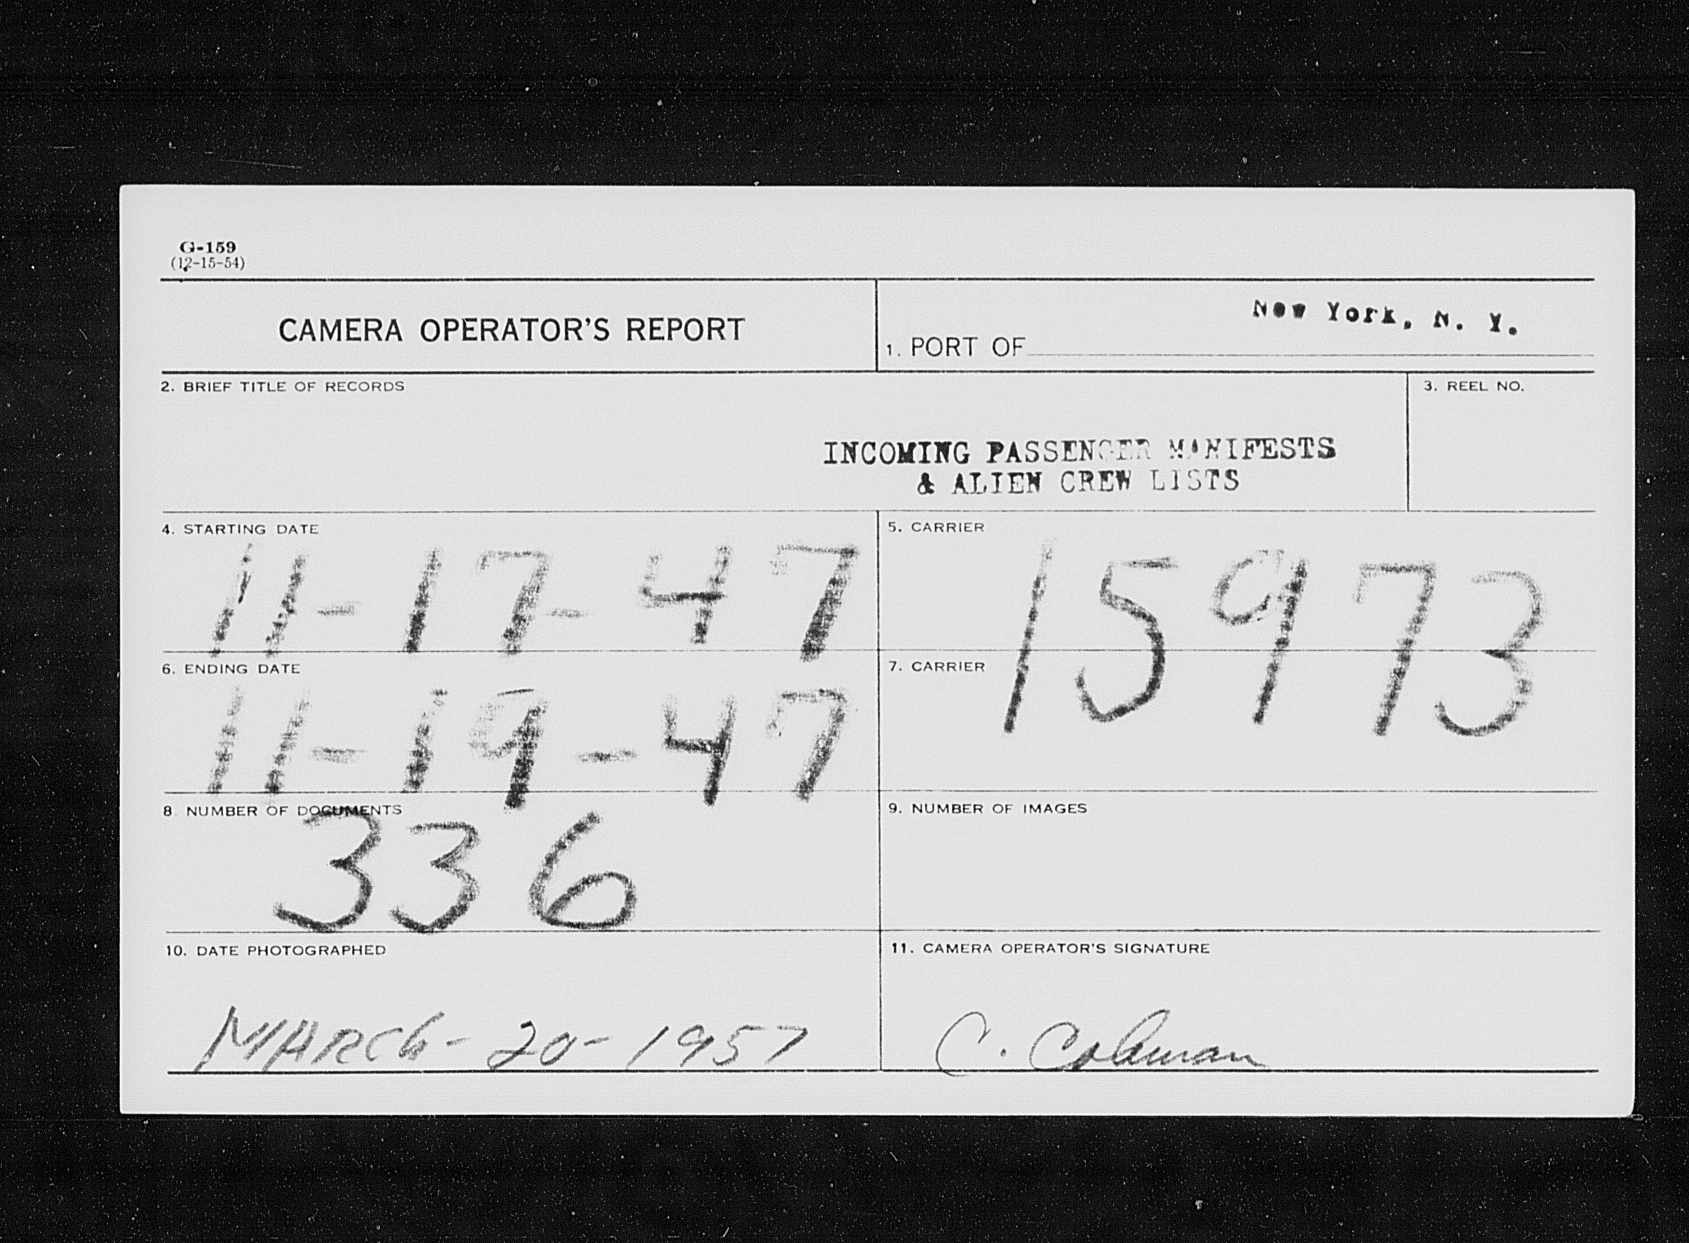 G-159
(12-15-54)
CAMERA OPERATOR'S REPORT
1. PORT OF New York, N. Y.
2. BRIEF TITLE OF RECORDS
INCOMING PASSENGER MANIFESTS
& ALIEN CREW LISTS
3. REEL NO.
4. STARTING DATE
11-17-47
5. CARRIER
15973
6. ENDING DATE
11-19-47
7. CARRIER
8. NUMBER OF DOCUMENTS
336
9. NUMBER OF IMAGES
10. DATE PHOTOGRAPHED
MARCH-20-1957
11. CAMERA OPERATOR'S SIGNATURE
C. Coleman